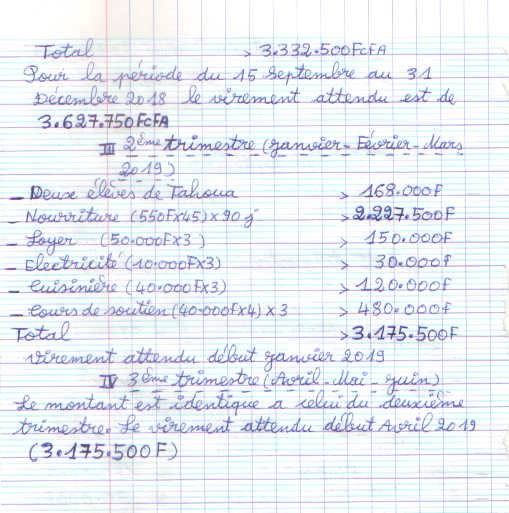 Total > 3.332.500FcFA
Pour la période du 15 Septembre au 31
Décembre 2018 le virement attendu est de
3.627.750FcFA
III 2ème trimestre (Janvier-Février-Mars
2019)
- Deux élèves de Tahoua > 168.000F
- Nourriture (550Fx45)x90 j > 2.227.500F
- Loyer (50.000Fx3) > 150.000F
- Electricité (10.000Fx3) > 30.000F
- Cuisinière (40.000Fx3) > 120.000F
- Cours de soutien (40.000Fx4) x 3 > 480.000F
Total > 3.175.500F
virement attendu début Janvier 2019
IV 3ème trimestre (Avril-Mai-Juin)
Le montant est identique a celui du deuxième
trimestre. Le virement attendu début Avril 2019
(3.175.500F)